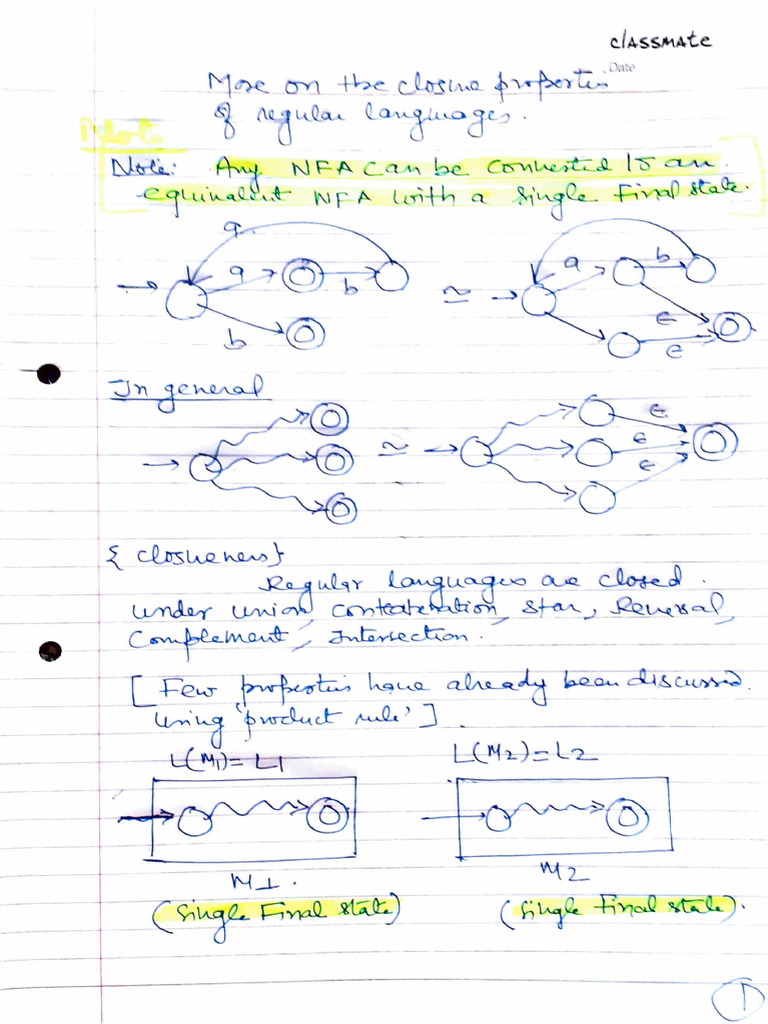 classmate
Date
More on the closure properties
of regular languages.
Note: Any NFA can be converted to an
equivalent NFA with a single final state.
a
a
b
b
≃
a
b
ε
ε
In general
≃
ε
ε
ε
{ closureness}
Regular languages are closed.
under union, concatenation, star, Reversal,
Complement, Intersection.
[ Few properties have already been discussed
using 'product rule' ]
L(M1) = L1
L(M2) = L2
M1.
M2
(single Final state)
(single final state).
1